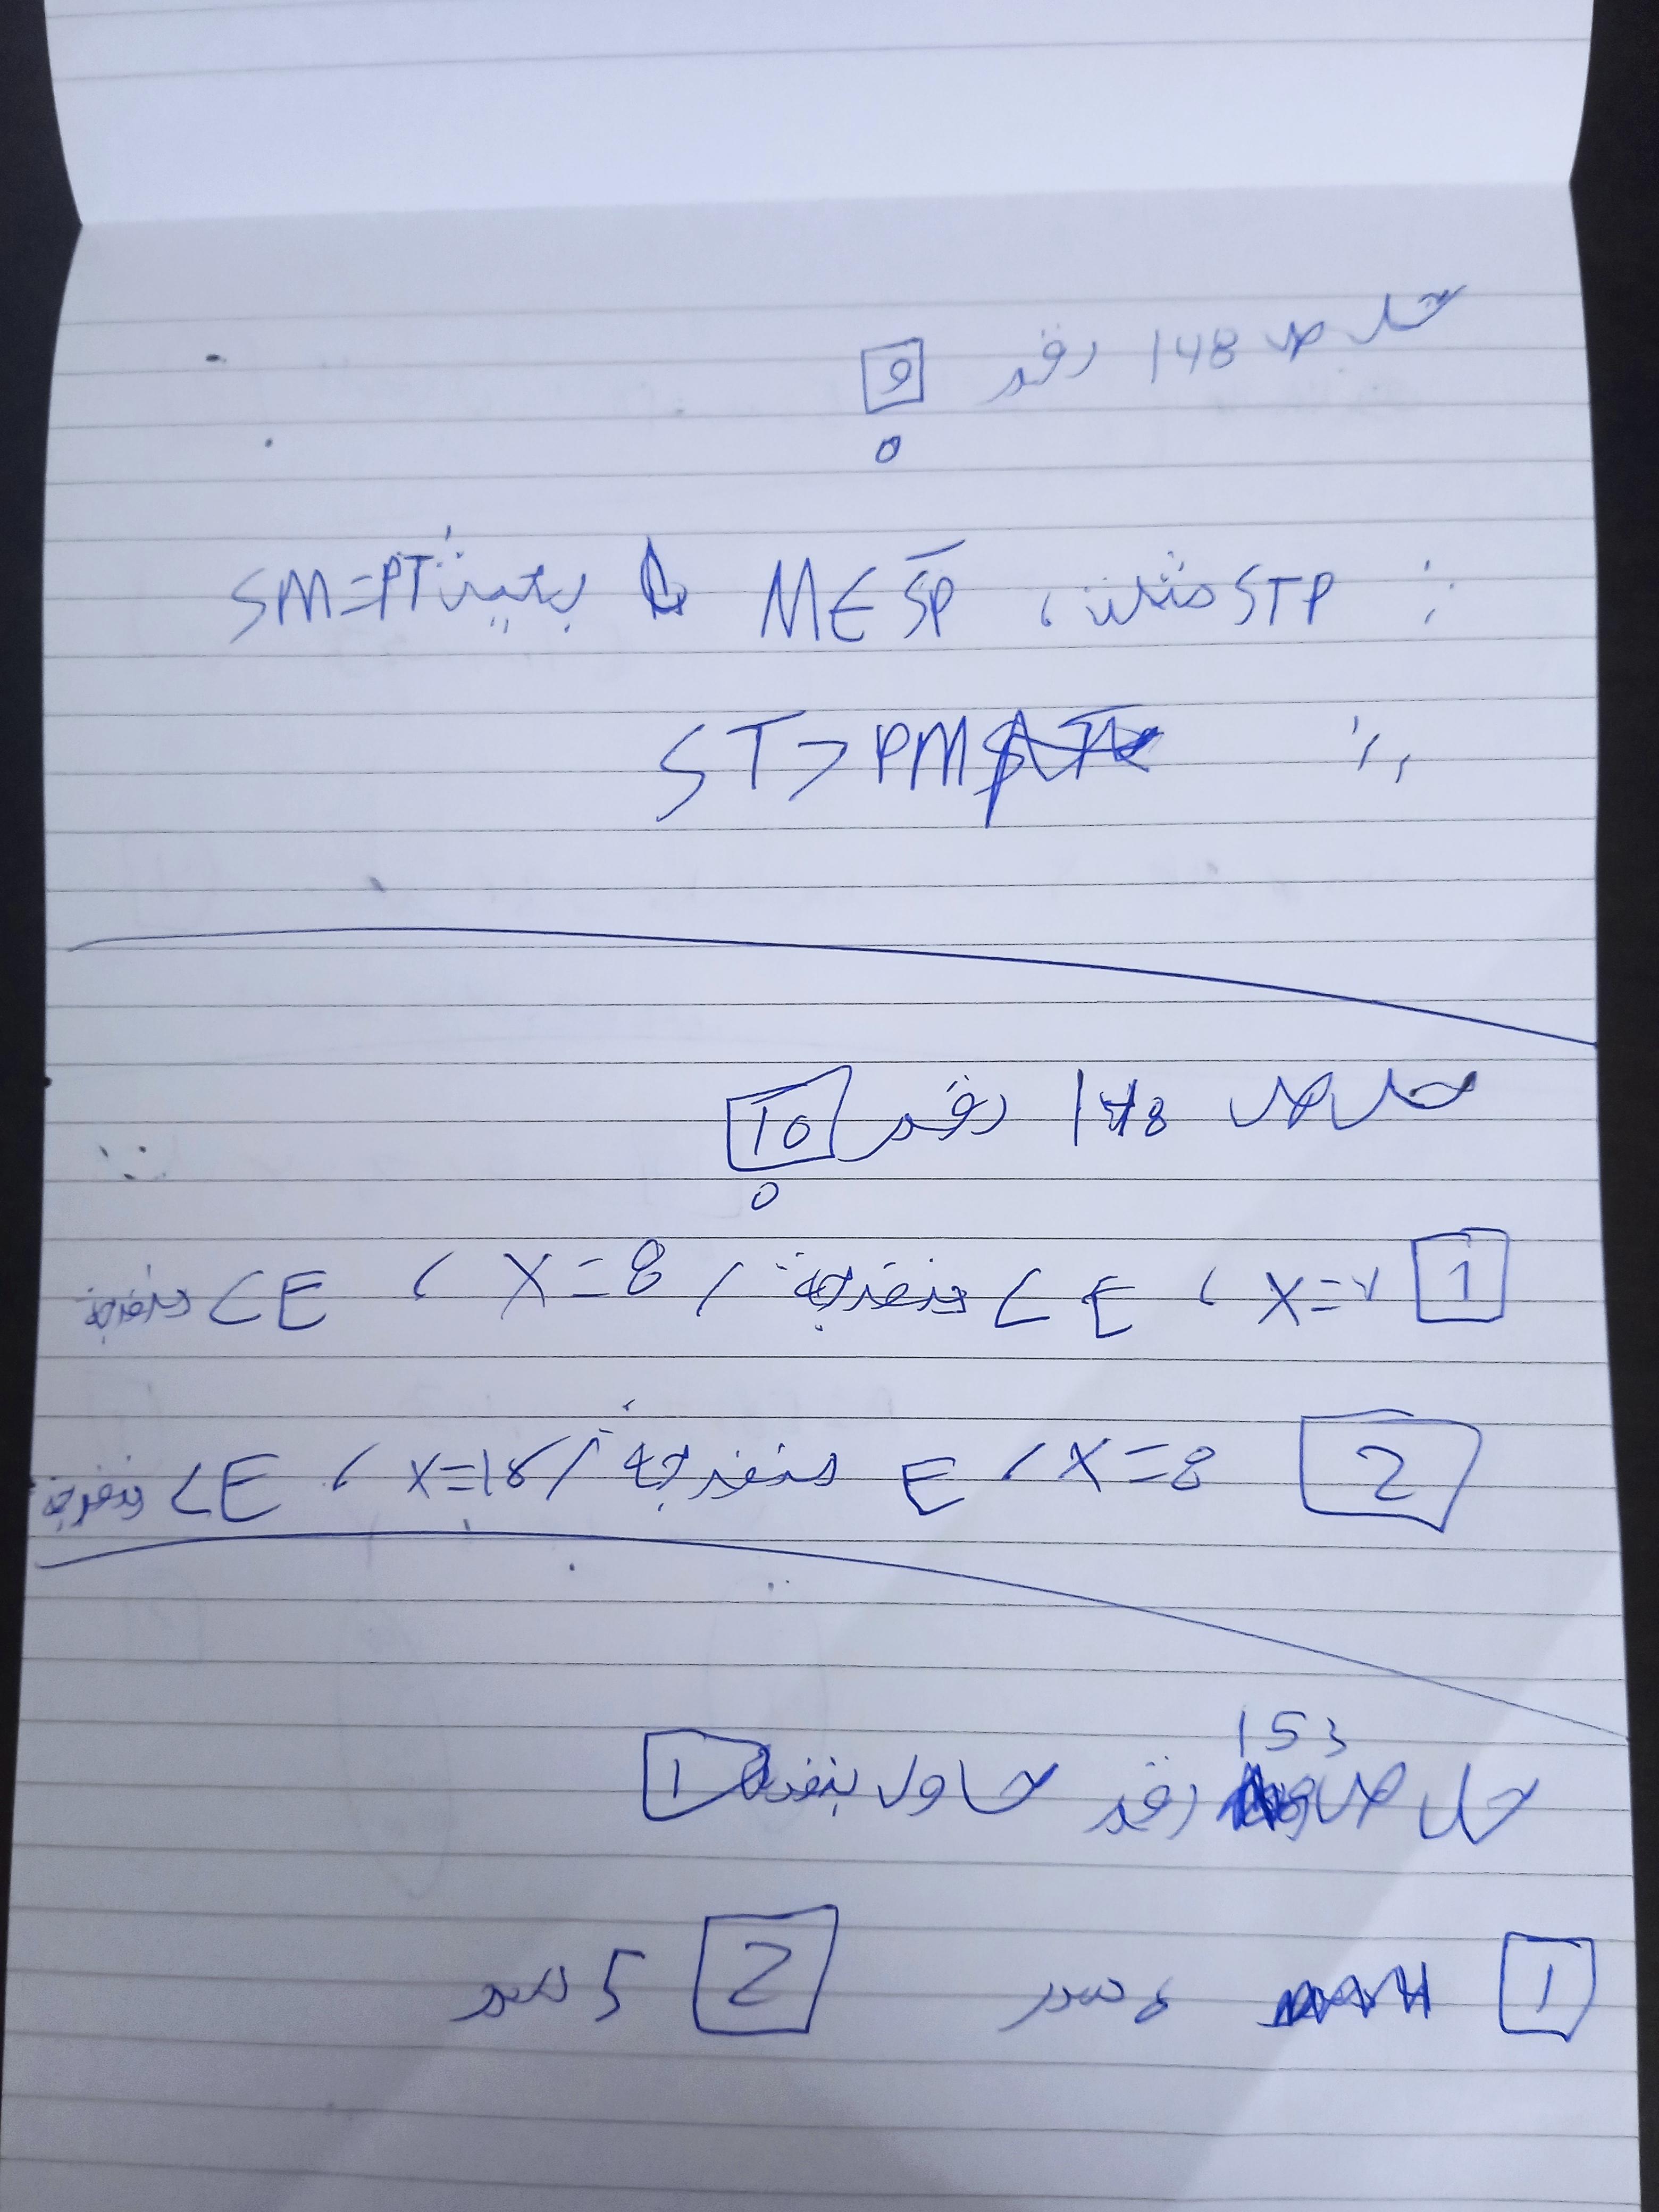 حل ص 148 رقم 9
∵ STP مثلث، M∈SP بحيث SM=PT
∴ ST>PM
حل ص 148 رقم 10
1 X=7 ، <E منفرجة / X=8 ، <E منفرجة
2 X=8 ، E منفرجة / X=18 ، <E منفرجة
حل ص 153 رقم حاول بنفسك 1
1 سم 2 5 سم